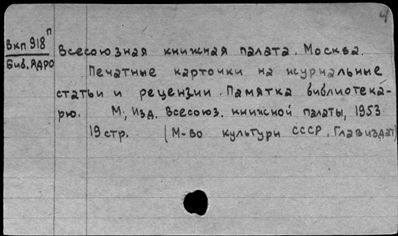 4
Вкп 918п
Биб. Ядро
Всесоюзная книжная палата. Москва.
Печатные карточки на журнальные
статьи и рецензии. Памятка библиотека-
рю. М., Изд. Всесоюз. книжной палаты, 1953
19 стр. (М-во культуры СССР. Главиздат)